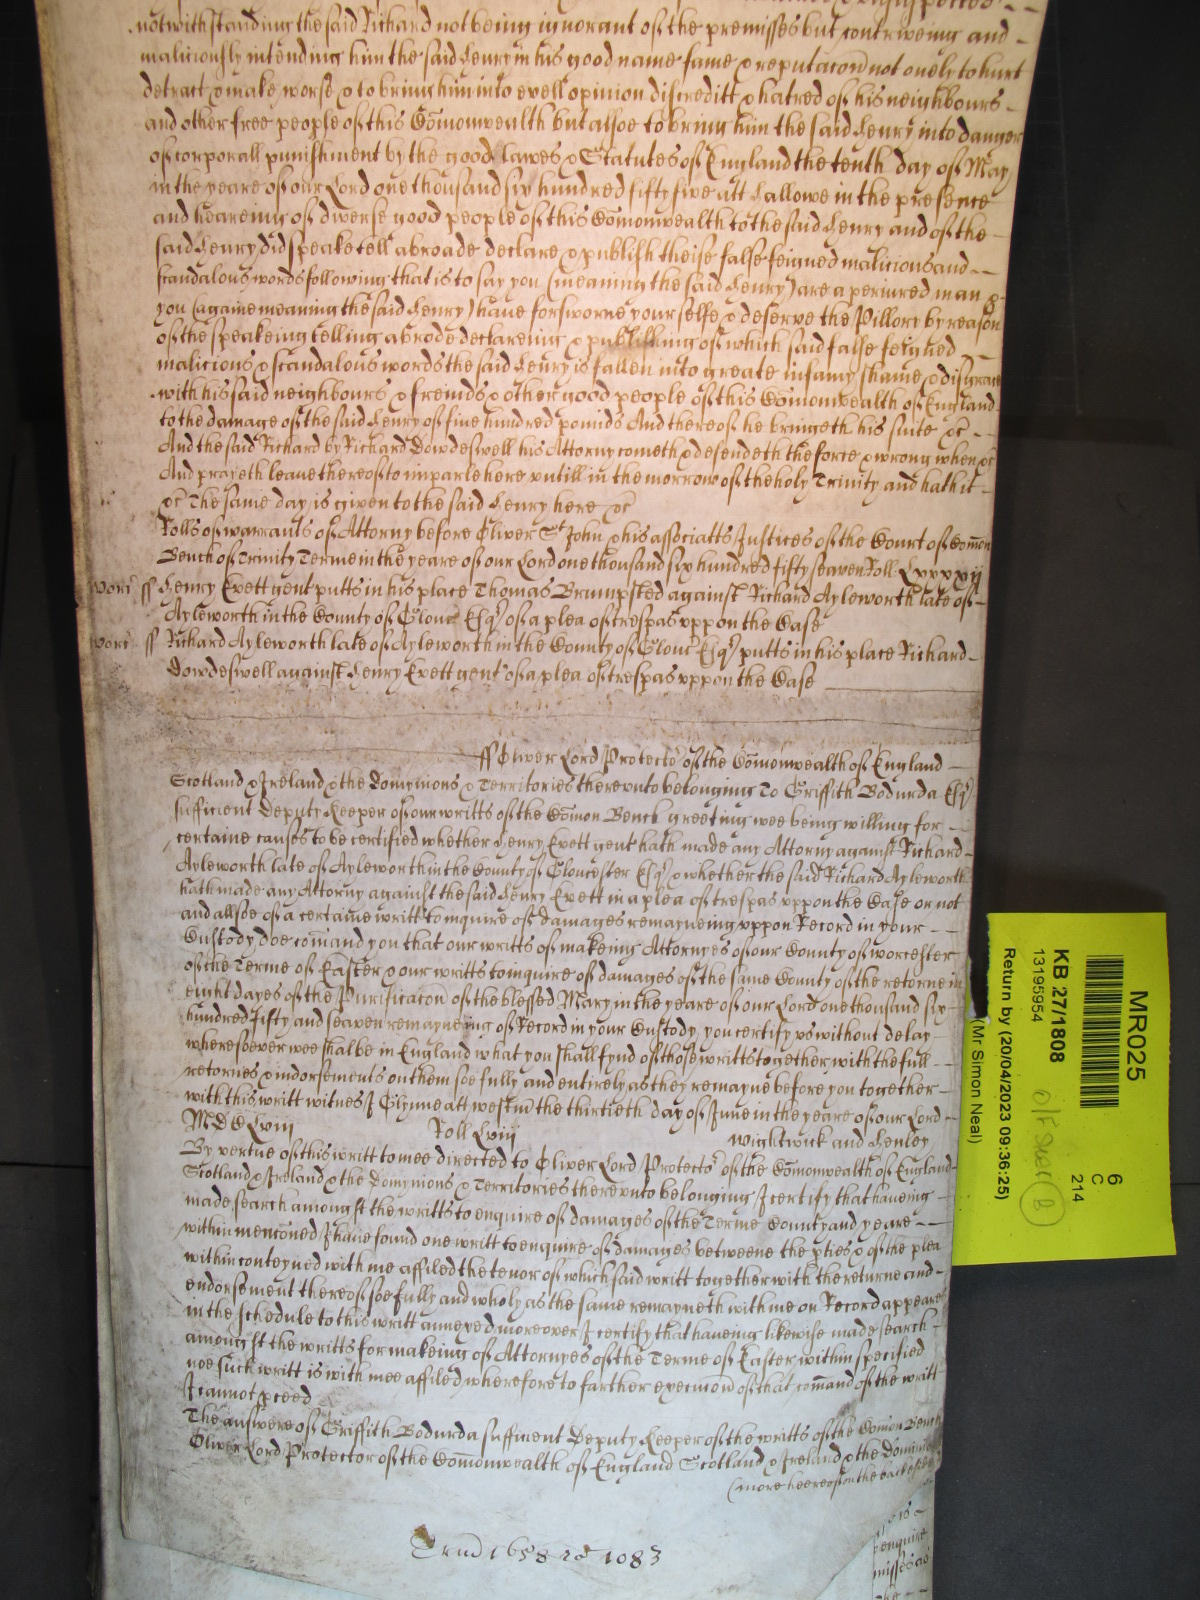 notwithstanding the said Richard not being ignorant of the premisses but contriveing and
maliciously intending him the said Henry in his good name fame & reputacōn not onely to hurt
detract & make worse & to bring him into evell opinion discreditt & hatred of his neighbours
and other free people of this Cōmonwealth but alsoe to bring him the said Henry into danger
of corporall punishment by the good lawes & Statutes of England the tenth day of May
in the yeare of our Lord one thousand six hundred fifty five att Hallowe in the presence
and heareing of diverse good people of this Cōmonwealth to the said Henry and of the
said Henry did speake tell abroade declare & publish theise false feigned malicious and
scandalous words following that is to say you (meaning the said Henry) are a periured man &
you (againe meaning the said Henry) haue forsworne your selfe & deserve the Pillory by reason
of the speakeing telling abrode declareing & publishing of which said false feigned
malicious & scandalous words the said Henry is fallen into greate infamy shame & disgrace
with his said neighbours & freinds & other good people of this Cōmonwealth of England
to the damage of the said Henry of fiue hundred pounds And thereof he bringeth his suite &c
And the said Richard by Richard Dowdeswell his Attorny cometh & defendeth the force & wrong when &c
And prayeth leaue thereof to imparle here untill in the morrow of the holy Trinity and hath it
&c The same day is given to the said Henry here &c
Rolls of warrants of Attorny before Oliver St John & his associatts Justices of the Court of Cōmon
Bench of Trinity Terme in the yeare of our Lord one thousand six hundred fifty seaven Roll Lxxxxij
Henry Evett gent putts in his place Thomas Brumpsted against Richard Ayleworth late of
Ayleworth in the County of Glouc Esqr of a plea of trespas vppon the Case
Richard Ayleworth late of Ayleworth in the County of Glouc Esqr putts in his place Richard
Dowdeswell against Henry Evett gent of a plea of trespas vppon the Case
ff Oliver Lord Protector of the Cōmonwealth of England
Scotland & Ireland & the Domynions & Territories therevnto belonging To Griffith Bodurda Esqr
sufficient Deputy Keeper of our writts of the Cōmon Bench greeting wee being willing for
certaine causes to be certified whether Henry Evett gent hath made any Attorny against Richard
Ayleworth late of Ayleworth in the County of Gloucester Esqr & whether the said Richard Ayleworth
hath made any Attorny against the said Henry Evett in a plea of trespas vppon the Case or not
and allsoe of a certaine writt to inquire of damages remayneing vppon Record in your
Custody doe cōmand you that our writts of makeing Attornyes of our County of worcester
of the Terme of Easter & our writts to inquire of damages of the same County of the retorne in
eight dayes of the Purificacōn of the blessed Mary in the yeare of our Lord one thousand six
hundred fifty and seaven remayneing of Record in your Custody you certify vs without delay
wheresoever wee shalbe in England what you shall fynd of those writts together with the full
retornes & indorsements on them soe fully and entirely as they remayne before you together
with this writt witnes J Glynne att westm̄ the thirtieth day of June in the yeare of our Lord
MDCLviij Roll Lviij Wightwick and Henley
By vertue of this writt to mee directed to Oliver Lord Protector of the Cōmonwealth of England
Scotland & Ireland & the Domynions & Territories therevnto belonging J certify that haueing
made search amongst the writts to enquire of damages of the Terme County and yeare
within menc̄oned J haue found one writt to enquire of damages betweene the pties & of the plea
within conteyned with me affiled the tenor of which said writt together with the returne and
endorsement thereof soe fully and wholy as the same remayneth with me on Record appeares
in the schedule to this writt annexed moreover J certify that haueing likewise made search
amongst the writts for makeing of Attornyes of the Terme of Easter within specified
noe such writt is with mee affiled wherefore to farther execucōn of that cōmand of the writt
J cannot pceed
The answere of Griffith Bodurda sufficient Deputy Keeper of the writts of the Cōmon Bench
Oliver Lord Protector of the Cōmonwealth of England Scotland & Ireland & the Domin
(more heereof on the backside)
enquire
Trin 1658 ro 1083
MR025
6
C
214
KB 27/1808
13195954
Return by (20/04/2023 09:36:25)
(Mr Simon Neal)